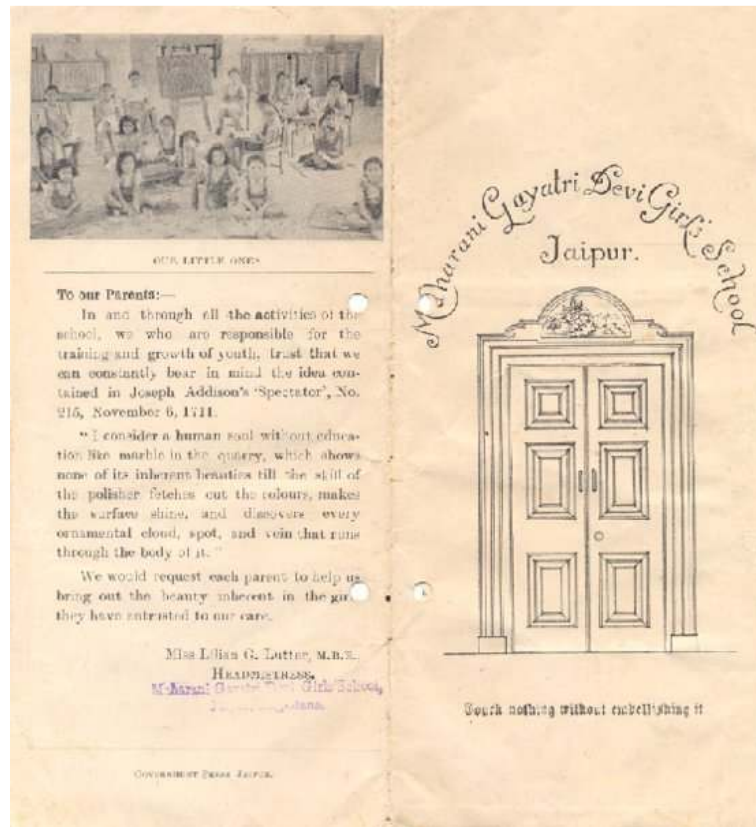 OUR LITTLE ONES
To our Parents:—
In and through all the activities of the
school, we who are responsible for the
training and growth of youth, trust that we
can constantly bear in mind the idea con-
tained in Joseph Addison's 'Spectator', No.
215, November 6, 1711.
"I consider a human soul without educa-
tion like marble in the quarry, which shows
none of its inherent beauties till the skill of
the polisher fetches out the colours, makes
the surface shine, and discovers every
ornamental cloud, spot, and vein that runs
through the body of it."
We would request each parent to help us
bring out the beauty inherent in the girls
they have entrusted to our care.
Miss Lilian G. Lutter, M.B.E.
HEADMISTRESS.
Maharani Gayatri Devi Girls' School,
GOVERNMENT PRESS JAIPUR.
Maharani Gayatri Devi Girls' School
Jaipur.
Touch nothing without embellishing it